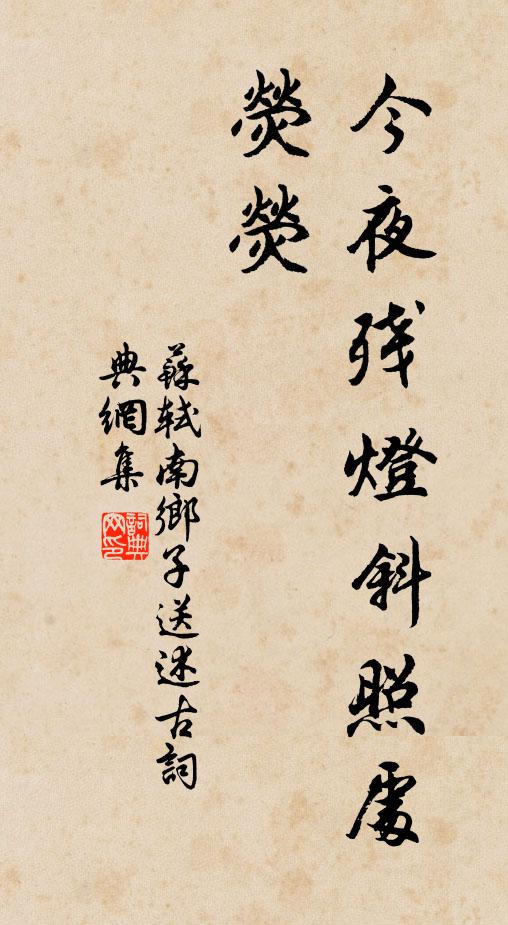 今夜残燈斜照處
熒熒
蘇軾南鄉子送述古詞
典網集
詞典
网印